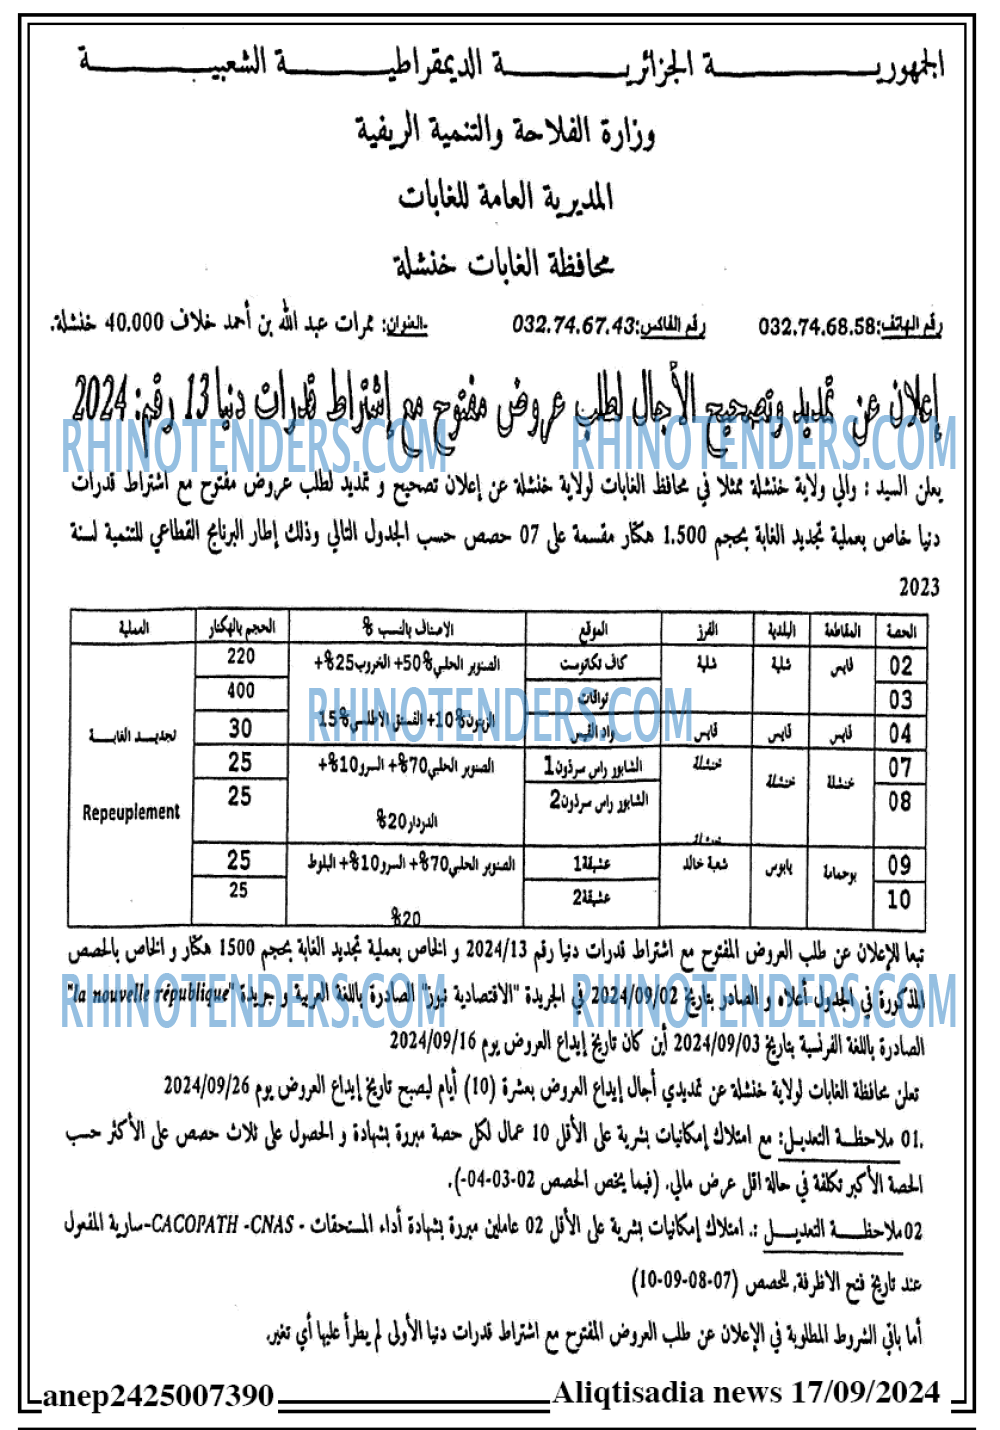 الجمهوريـــة الجزائريـــة الديمقراطيـــة الشعبيـــة
وزارة الفلاحة والتنمية الريفية
المديرية العامة للغابات
محافظة الغابات خنشلة
رقم الهاتف:032.74.68.58 رقم الفاكس:032.74.67.43 العنوان: ممرات عبد الله بن أحمد خلاف 40.000 خنشلة.
إعلان عن تمديد وتصحيح الأجال لطلب عروض مفتوح مع إشتراط قدرات دنيا 13 رقم: 2024
RHINOTENDERS.COM RHINOTENDERS.COM
يعلن السيد : والي ولاية خنشلة ممثلا في محافظ الغابات لولاية خنشلة عن إعلان تصحيح و تمديد لطلب عروض مفتوح مع اشتراط قدرات
دنيا خاص بعملية تجديد الغابة بحجم 1.500 هكتار مقسمة على 07 حصص حسب الجدول التالي وذلك إطار البرنامج القطاعي للتنمية لسنة
2023
الحصة المقاطعة البلدية الفرز الموقع الاصناف بالنسب % الحجم بالهكتار العملية
02 قايس شلية شلية كاف تكانوست الصنوبر الحلبي50%+ الخروب25%+ 220
03 تواقات 400
RHINOTENDERS.COM
04 قايس قايس قايس واد القيس الزيتون10%+ الفستق الاطلسي15% 30 تجديـد الغابـة
07 خنشلة خنشلة خنشلة الشابور راس سرذون1 الصنوبر الحلبي70%+ السرو10%+ 25
08 الشابور راس سرذون2 الدردار20% 25 Repeuplement
خنشلة
09 بوحمامة يابوس شعبة خالد عشيقة1 الصنوبر الحلبي70%+ السرو10%+ البلوط 25
10 عشيقة2 20% 25
تبعا للإعلان عن طلب العروض المفتوح مع اشتراط قدرات دنيا رقم 2024/13 و الخاص بعملية تجديد الغابة بحجم 1500 هكتار و الخاص بالحصص
المذكورة في الجدول أعلاه و الصادر بتاريخ 2024/09/02 في الجريدة "الاقتصادية نيوز" الصادرة باللغة العربية و جريدة "la nouvelle république"
RHINOTENDERS.COM RHINOTENDERS.COM
الصادرة باللغة الفرنسية بتاريخ 2024/09/03 أين كان تاريخ إيداع العروض يوم 2024/09/16
تعلن محافظة الغابات لولاية خنشلة عن تمديدي أجال إيداع العروض بعشرة (10) أيام ليصبح تاريخ إيداع العروض يوم 2024/09/26
01. ملاحظـة التعديـل: مع امتلاك إمكانيات بشرية على الأقل 10 عمال لكل حصة مبررة بشهادة و الحصول على ثلاث حصص على الأكثر حسب
الحصة الأكبر تكلفة في حالة اقل عرض مالي. (فيما يخص الحصص 02-03-04-).
02ملاحظـــة التعديـــل :. امتلاك إمكانيات بشرية على الأقل 02 عاملين مبررة بشهادة أداء المستحقات - CACOPATH -CNAS-سارية المفعول
عند تاريخ فتح الاظرفة, للحصص (07-08-09-10)
أما باقي الشروط المطلوبة في الإعلان عن طلب العروض المفتوح مع اشتراط قدرات دنيا الأولى لم يطرأ عليها أي تغير.
anep2425007390 Aliqtisadia news 17/09/2024